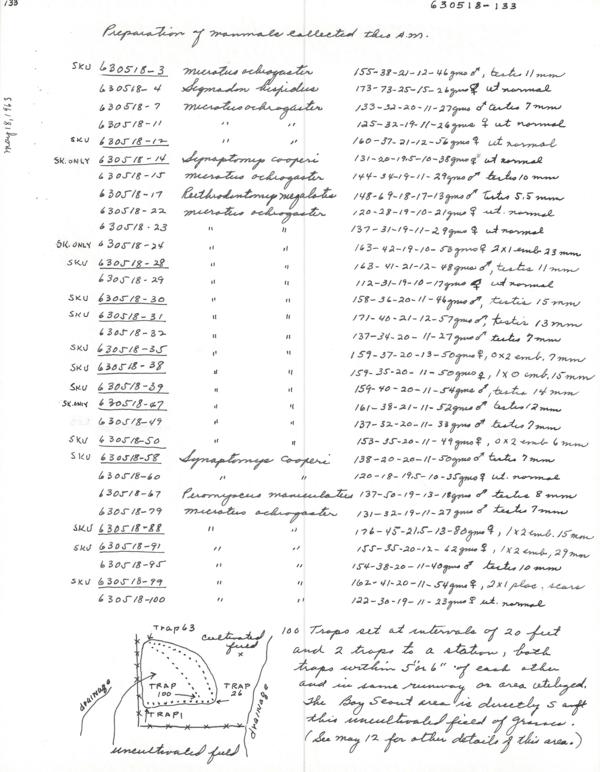 133
630518-133
Preparation of mammals collected this A.M.
May 18, 1963
SKU 630518-3 microtus ochrogaster 155-38-21-12-46gms ♂, testis 11 mm
630518-4 Sigmadon hispidus 173-73-25-15-26gms ♀ ut normal
630518-7 microtus ochrogaster 133-32-20-11-27gms ♂ testes 7 mm
630518-11 " " 125-32-19-11-26gms ♀ ut normal
SKU 630518-12 " " 160-37-21-12-56gms ♀ ut normal
SK.ONLY 630518-14 Synaptomys cooperi 131-20-19.5-10-38gms ♀ ut normal
630518-15 microtus ochrogaster 144-34-19-11-29gms ♂ testes 10 mm
630518-17 Reithrodontomys megalotis 148-69-18-17-13gms ♂ testes 5.5 mm
630518-22 microtus ochrogaster 120-28-19-10-21gms ♀ ut. normal
630518-23 " " 137-31-19-11-29gms ♀ ut normal
SK.ONLY 630518-24 " " 163-42-19-10-53gms ♀ 2x1 emb 23 mm
SKU 630518-28 " " 163-41-21-12-48gms ♂, testis 11 mm
630518-29 " " 112-31-19-10-17gms ♀ ut normal
SKU 630518-30 " " 158-36-20-11-46gms ♂, testis 15 mm
SKU 630518-31 " " 171-40-21-12-57gms ♂, testis 13 mm
630518-32 " " 137-34-20-11-27gms ♂ testes 7 mm
SKU 630518-35 " " 159-37-20-13-50gms ♀, 0x2 emb. 7 mm
SKU 630518-38 " " 159-35-20-11-50gms ♀, 1x0 emb. 15 mm
SKU 630518-39 " " 159-40-20-11-54gms ♂, testes 14 mm
SK.ONLY 630518-47 " " 161-38-21-11-52gms ♂ testes 12 mm
630518-49 " " 137-32-20-11-33gms ♂ testes 7 mm
SKU 630518-50 " " 153-35-20-11-49gms ♀, 0x2 emb 6 mm
SKU 630518-58 Synaptomys cooperi 138-20-20-11-50gms ♂ testes 7 mm
630518-60 " " 120-18-19.5-10-35gms ♀ ut. normal
630518-67 Peromyscus maniculatus 137-50-19-13-18gms ♂ testes 8 mm
630518-79 microtus ochrogaster 131-32-19-11-27gms ♂ testes 7 mm
SKU 630518-88 " " 176-45-21.5-13-80gms ♀, 1x2 emb. 15 mm
SKU 630518-91 " " 155-35-20-12-62gms ♀, 1x2 emb, 29 mm
630518-95 " " 154-38-20-11-40gms ♂ testes 10 mm
SKU 630518-99 " " 162-41-20-11-54gms ♀, 2x1 plac. scars
630518-100 " " 122-30-19-11-23gms ♀ ut. normal
Trap 63
cultivated field
TRAP 100
TRAP 26
TRAP 1
drainage
drainage
uncultivated field
100 Traps set at intervals of 20 feet
and 2 traps to a station, both
traps within 5" or 6" of each other
and in same runway or area utilized.
The Boy Scout area is directly S of
this uncultivated field of grasses.
(See May 12 for other details of this area.)